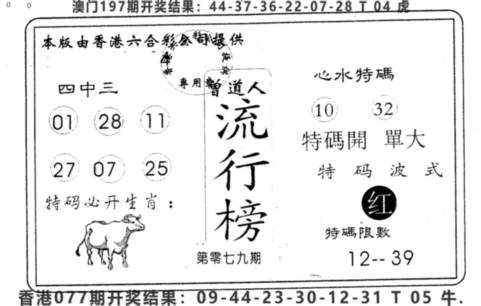 澳门197期开奖结果：44-37-36-22-07-28 T 04 虎
本版由香港六合彩公司提供
專用章
四中三
01 28 11
27 07 25
特码必开生肖：
曾道人
流行榜
第零七九期
心水特碼
10 32
特碼開 單大
特码波式
红
特碼限數
12--39
香港077期开奖结果：09-44-23-30-12-31 T 05 牛.